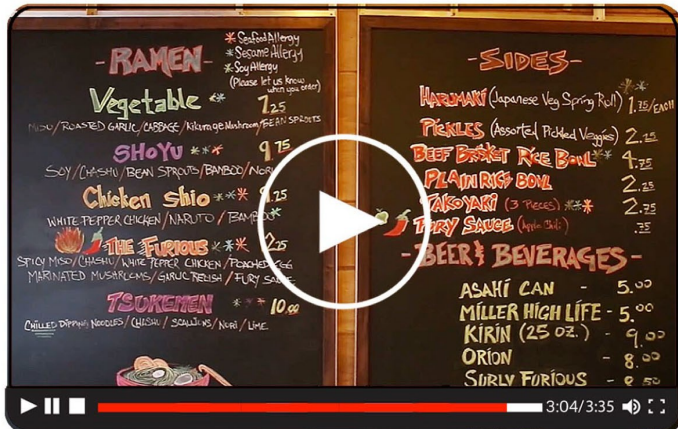 - RAMEN -
* Seafood Allergy
* Sesame Allergy
* Soy Allergy
(Please let us know
when you order)
Vegetable * 7.25
MISO/ROASTED GARLIC/CABBAGE/Kikurage Mushroom/BEAN SPROUTS
SHOYU ** 9.75
SOY/CHASHU/BEAN SPROUTS/BAMBOO/NORI
Chicken Shio *** 9.25
WHITE PEPPER CHICKEN/NARUTO/BAMBOO
THE FURIOUS ***
SPICY MISO/CHASHU/WHITE PEPPER CHICKEN/POACHED EGG
MARINATED MUSHROOMS/GARLIC RELISH/FURY SAUCE
TSUKEMEN *** 10.00
CHILLED DIPPING NOODLES/CHASHU/SCALLIONS/NORI/LIME
- SIDES -
HARUMAKI (Japanese Veg Spring Roll) 1.75/EACH
PICKLES (Assorted Pickled Veggies) 2.25
BEEF BRISKET RICE BOWL ** 4.75
PLAIN RICE BOWL 2.25
TAKOYAKI (3 PIECES) *** 2.75
FURY SAUCE (Apple Chili) .75
- BEER & BEVERAGES -
ASAHI CAN - 5.00
MILLER HIGH LIFE - 5.00
KIRIN (25 OZ.) - 9.00
ORION - 8.00
SURLY FURIOUS - 8.50
3:04/3:35